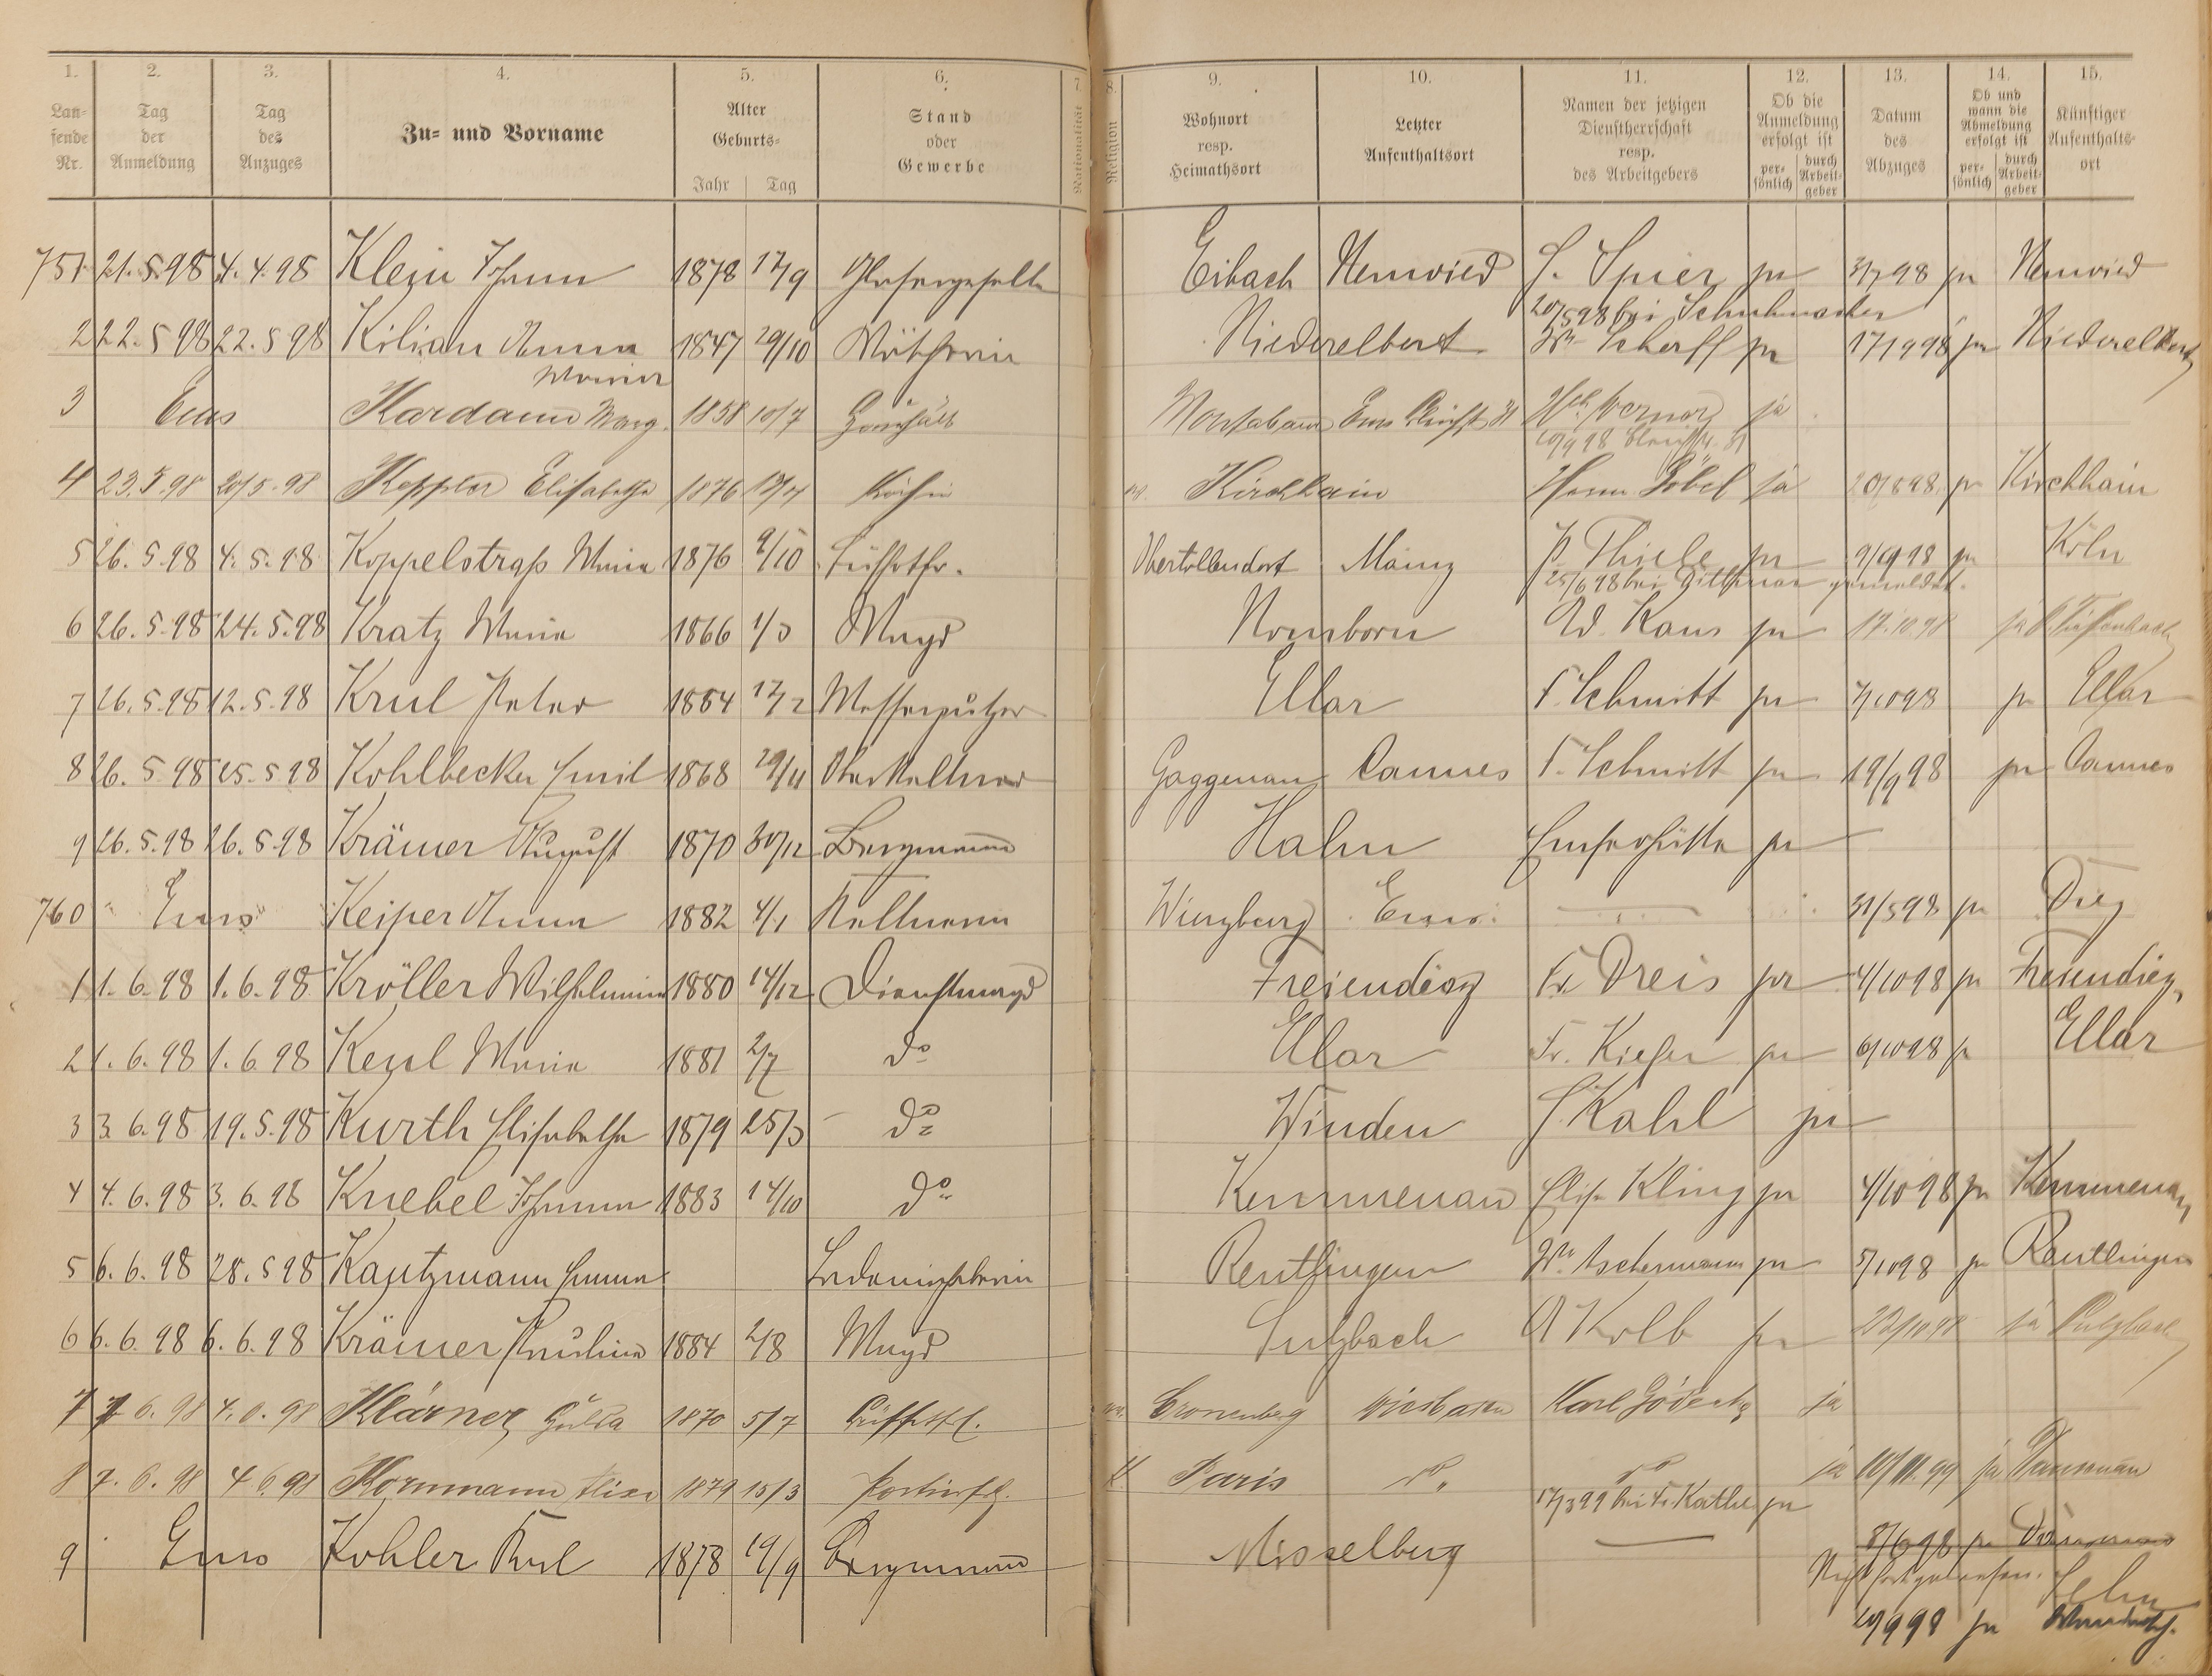 1. 2. 3. 4. 5. 6. 7. 8. 9. 10. 11. 12. 13. 14. 15.
Lau-
fende
Nr.
Tag
der
Anmeldung
Tag
des
Anzuges
Zu- und Vorname
Alter
Geburts-
Jahr Tag
Stand
oder
Gewerbe
Nationalität
Religion
Wohnort
resp.
Heimathsort
Letzter
Aufenthaltsort
Namen der jetzigen
Dienstherrschaft
resp.
des Arbeitgebers
Ob die
Anmeldung
erfolgt ist
per-
sönlich
durch
Arbeit-
geber
Datum
des
Abzuges
Ob und
wann die
Abmeldung
erfolgt ist
per-
sönlich
durch
Arbeit-
geber
Künftiger
Aufenthalts-
ort
751 21.5.98 4.4.98 Klein Johann 1878 17/9 Glasergeselle Eibach Neuwied J. Spier ja 3/7 98 ja Neuwied
20/5 98 bei Schuhmacher
2 22.5 98 22.5 98 Kilian Anna 1847 29/10 Wäscherin Niederelbert Wwe Scherff ja 17/9 98 ja Niederelbert
3 Ems Kardaun Marg. 1858 10/7 Montabaur Ems ja
4 23.5.98 20/5.98 Keppler Elisabetha 1876 Köchin Kirchhain Herm Göbel ja 20/8 98 ja Kirchhain
5 26.5.98 4.5.98 Koppelstraß Maria 1876 9/10 Obertollendorf Mainz P. Thiele ja 9/9 98 ja Köln
25/6 98 bei Dittmar gemeldet.
6 26.5.98 24.5.98 Kratz Maria 1866 1/3 Magd Nomborn W. Kaus ja 17.10.98 ja
7 26.5.98 12.5.98 Krul Peter 1884 17/2 Messerputzer Ellar F. Schmitt ja 7/10 98 ja Ellar
8 26.5 98 25.5 98 Kohlbecker Emil 1868 29/11 Oberkellner Gaggenau Cannes F. Schmitt ja 19/9 98 ja Cannes
9 26.5.98 26.5.98 Krämer August 1870 30/12 Bergmann Hahn Emserhütte ja
760 Ems Keiper Anna 1882 4/1 Kellnerin Würzburg Ems 31/5 98 ja Diez
1 1.6.98 1.6.98 Kröller Wilhelmine 1880 14/12 Dienstmagd Freiendiez Fr. Dreis ja 4/10 98 ja Freiendiez
2 1.6.98 1.6.98 Kezel Maria 1881 2/7 do Ellar Fr. Kiefer ja 6/10 98 ja Ellar
3 3.6.98 19.5.98 Kurth Elisabetha 1879 25/3 do Winden J. Kahl ja
4 4.6.98 3.6.98 Knebel Johanna 1883 14/10 do Kemmenau Elise Kling ja 4/10 98 ja Kemmenau
5 6.6.98 28.5 98 Kautzmann Emma Ladengehilfin Reutlingen Aschermann ja 5/10 98 ja Reutlingen
6 6.6.98 6.6.98 Krämer Pauline 1884 2/8 Magd Sulzbach A Kolb ja 22/10 98 ja Sulzbach
7 7.6.98 4.6.98 Klärner 1870 5/7 Cronenberg Wiesbaden Karl Gödecke ja
8 7.6.98 4.6.98 Kornmann Elise 1879 15/3 Paris do do ja 10/11.99 ja Dausenau
17/3 99 bei Fr. Kathe ja
9 Ems Kohler Karl 1878 19/9 Bergmann Misselberg 8/6 98 ja
10/9 98 ja